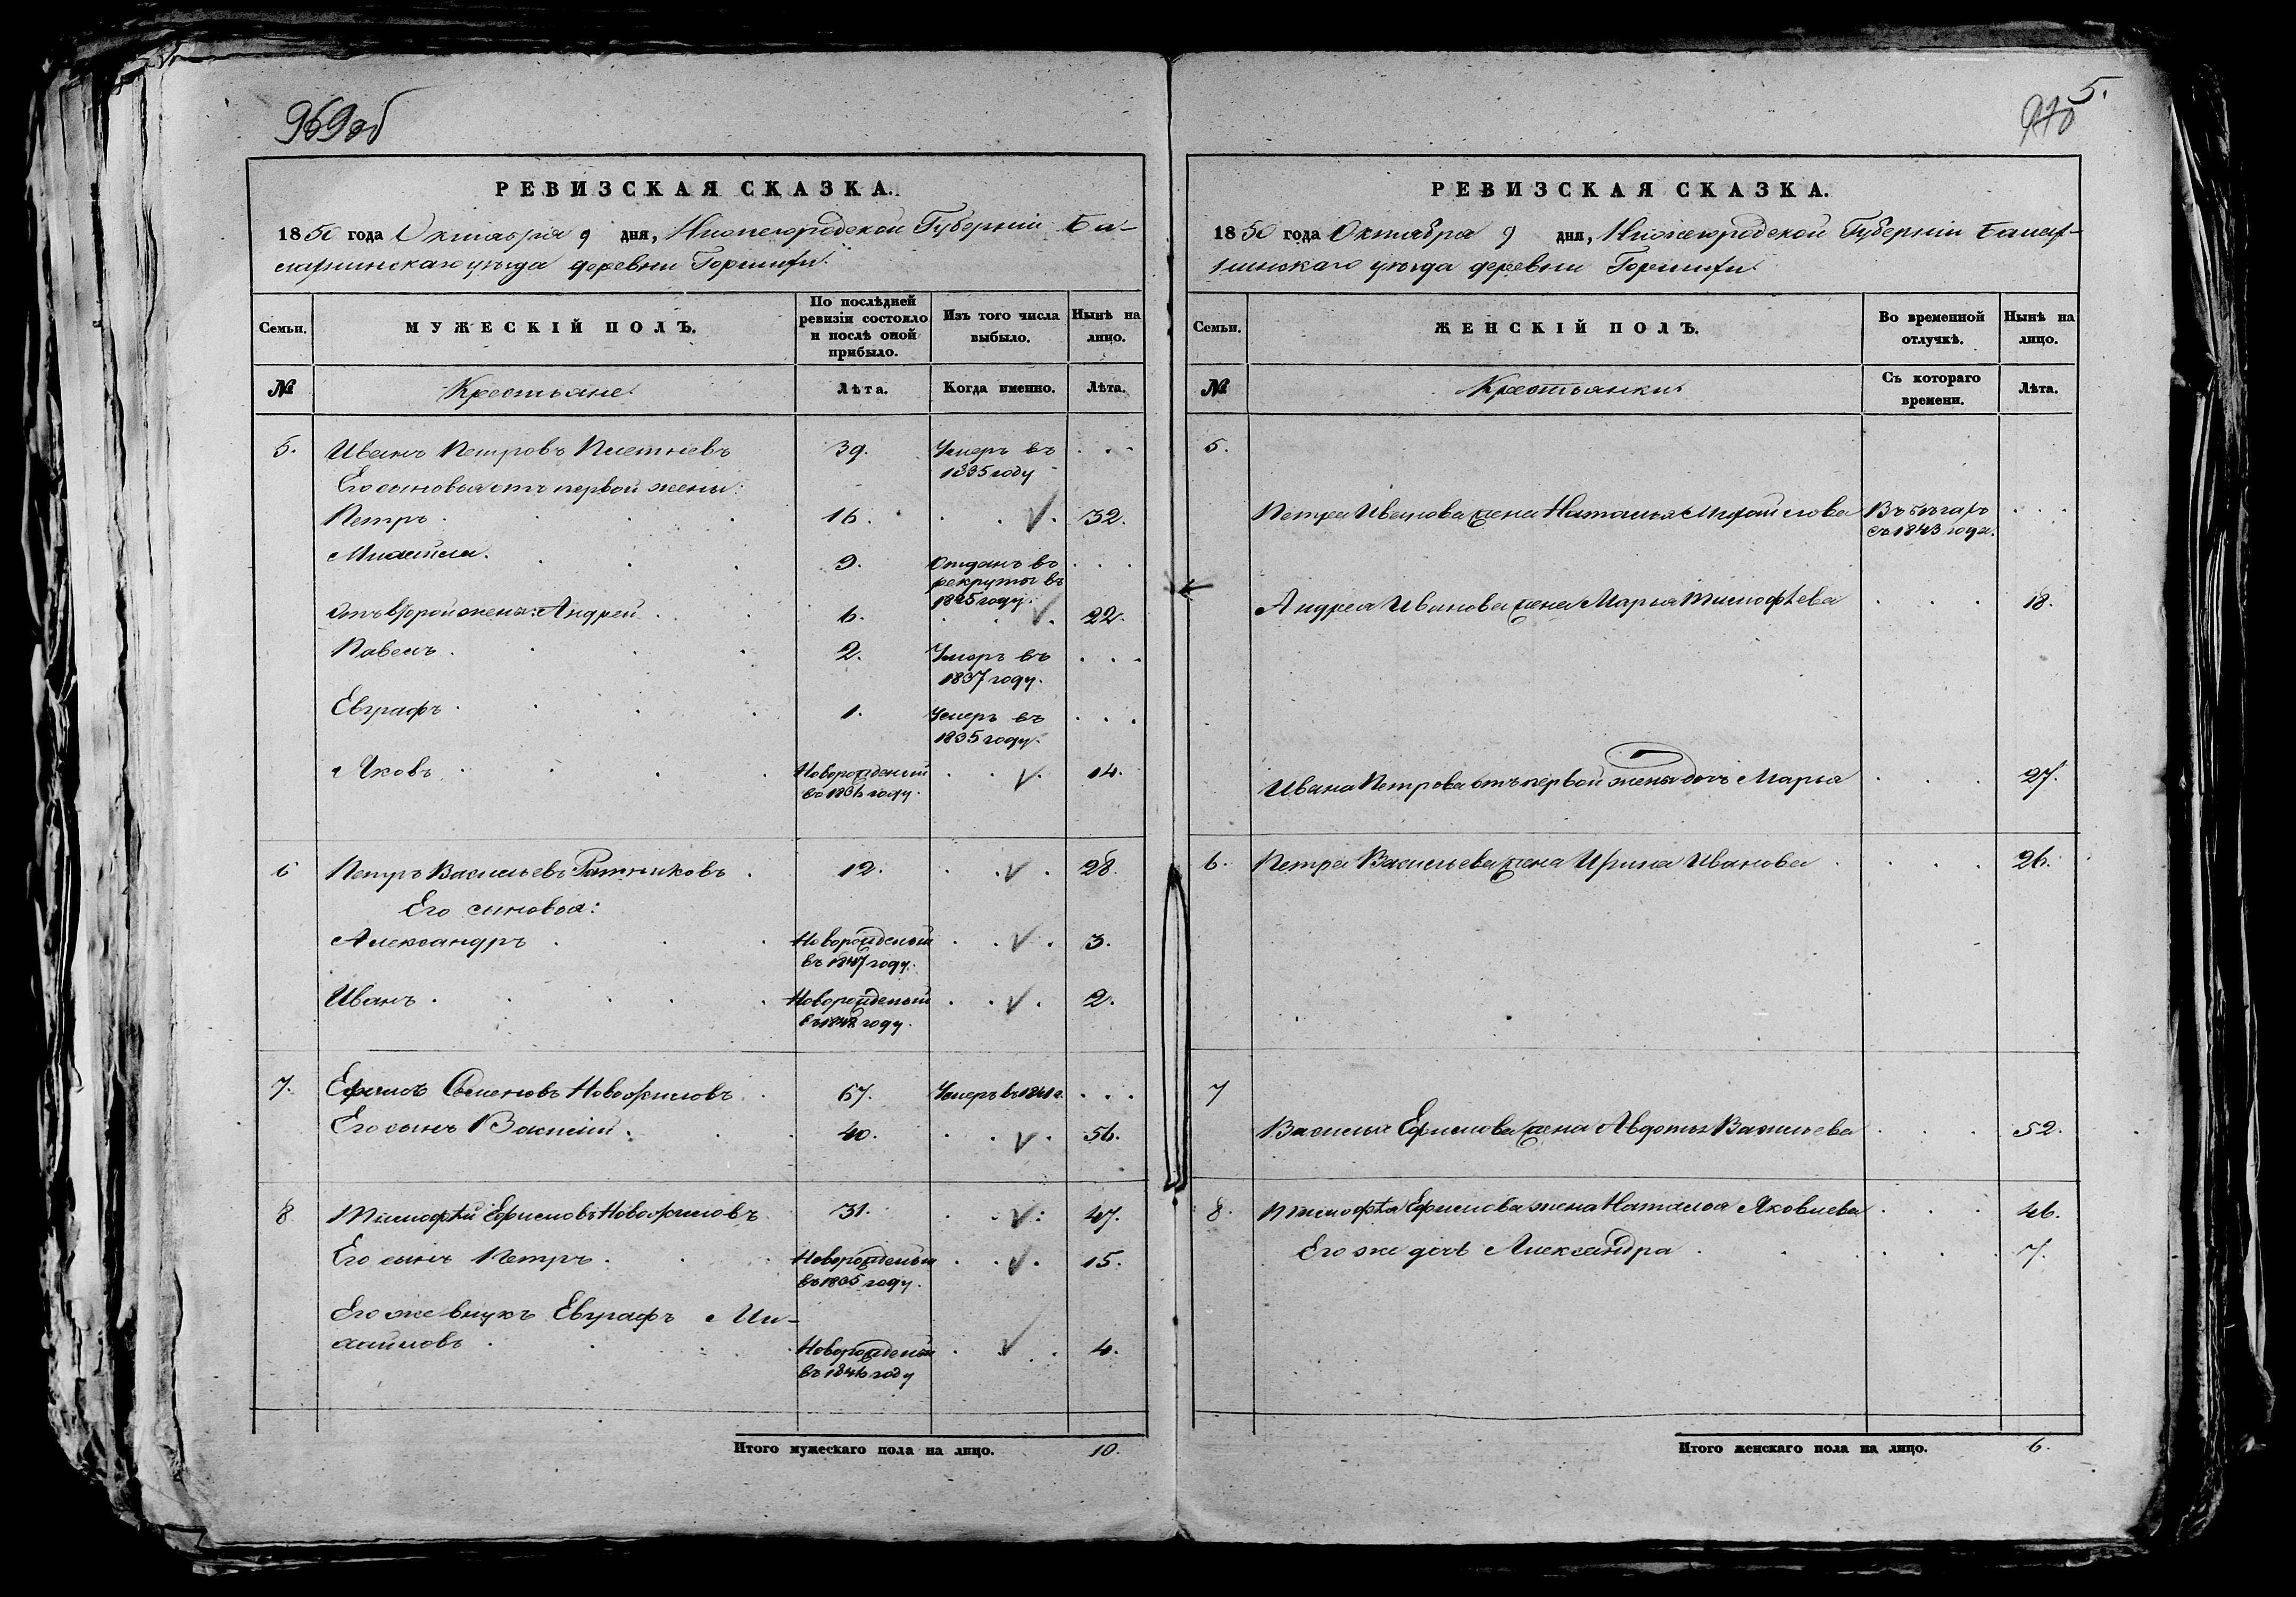 969об
РЕВИЗСКАЯ СКАЗКА.
1850 года Октября 9 дня, Нижегородской Губерніи Ба-
лахнинскаго уѣзда деревни
Семьи.
МУЖЕСКІЙ ПОЛЪ.
По послѣдней ревизіи состояло и послѣ оной прибыло.
Изъ того числа выбыло.
Нынѣ на лицо.
№
Крестьяне.
Лѣта.
Когда именно.
Лѣта.
5. Иванъ Петровъ Плетневъ 39. Умеръ въ
1835 году
Его сыновья отъ первой жены:
Петръ 16. 32.
Михайла. 9. Отданъ въ
рекруты въ
году.
Отъ второй жены: Андрей 6. 22.
Павелъ 2. Умеръ въ
1837 году.
Евграфъ 1. Умеръ въ
1835 году.
Яковъ Новорожденый 14.
въ 1836 году.
6 Петръ Васильевъ Ратниковъ 12. 28.
Его сыновья:
Александръ Новорожденый 3.
въ 1847 году.
Иванъ Новорожденый 2.
въ 1848 году.
7. Ефимъ Семеновъ 67. Умеръ въ 1841 г.
Его сынъ Василій. 40. 56.
8 Тимофѣй Ефимовъ 31. 47.
Его сынъ Петръ. Новорожденый 15.
въ 1835 году.
Его же внукъ Евграфъ Ми-
хайловъ Новорожденый 4.
въ 1846 году
Итого мужескаго пола на лицо. 10.
5.
970
РЕВИЗСКАЯ СКАЗКА.
1850 года Октября 9 дня, Нижегородской Губерніи Балах-
нинскаго уѣзда деревни
Семьи.
ЖЕНСКІЙ ПОЛЪ.
Во временной отлучкѣ.
Нынѣ на лицо.
№
Крестьянки
Съ котораго времени.
Лѣта.
5.
Петра Иванова жена Наталья Михайлова Въ бѣгахъ
съ 1843 года.
Андрея Иванова жена Марья Тимофѣева 18.
Ивана Петрова отъ первой жены дочь Марья 27.
6. Петра Васильева жена Ирина Иванова 26.
7
Василья Ефимова жена Авдотья Васильева 52.
8. Тимофѣя Ефимова жена Наталья Яковлева 46.
Его же дочь Александра 7.
Итого женскаго пола на лицо. 6.